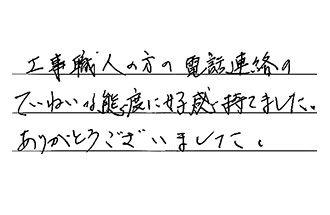 工事職人の方の電話連絡の
ていねいな態度に好感持てました。
ありがとうございました。